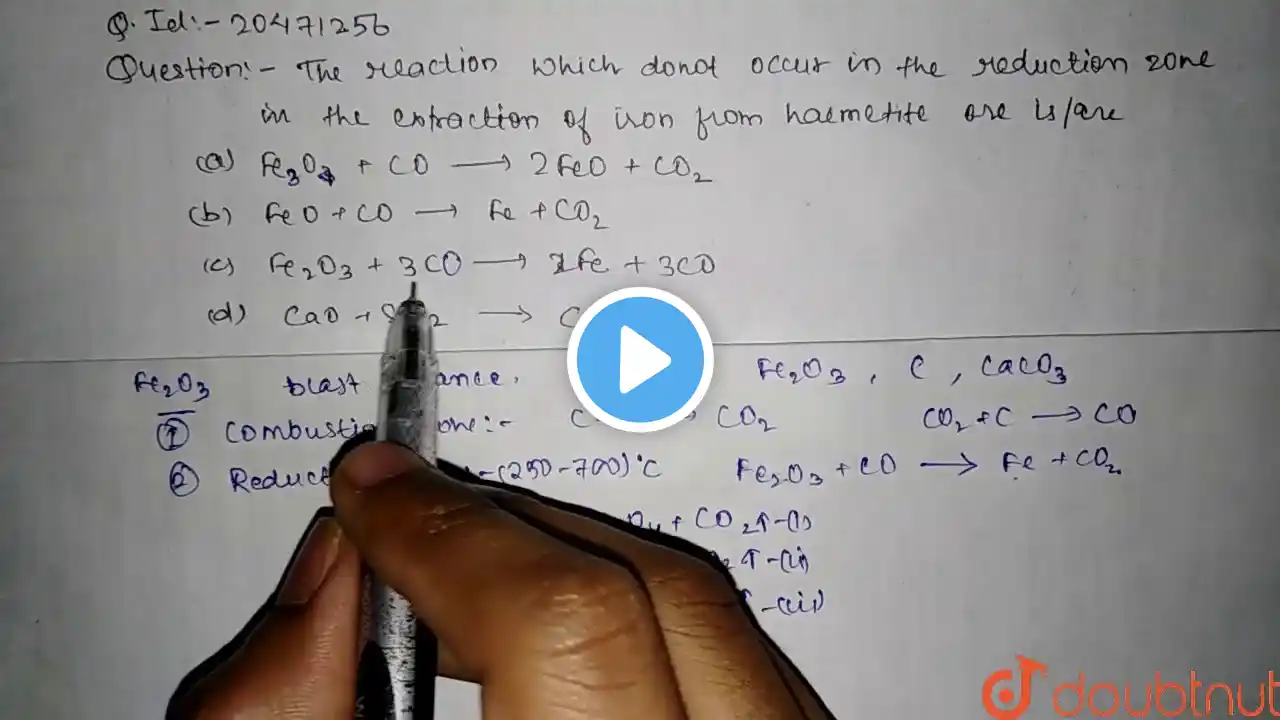 Q. Id:- 20471256
Question:- The reaction which donot occur in the reduction zone
in the extraction of iron from haemetite are is/are
(a) Fe3O4 + CO ⟶ 2FeO + CO2
(b) FeO + CO ⟶ Fe + CO2
(c) Fe2O3 + 3CO ⟶ 2Fe + 3CO
(d) CaO + ⟶ C
Fe2O3 blast Fe2O3 , C , CaCO3
① Combustion zone:- C CO2 CO2 + C ⟶ CO
② -(250-700)°C Fe2O3 + CO ⟶ Fe + CO2
+ CO2↑ -(i)
↑ -(ii)
-(iii)
doubtnut